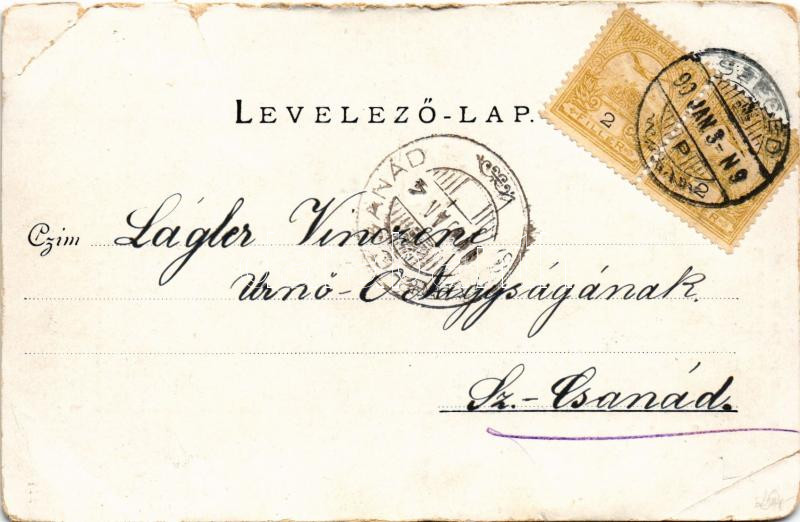 LEVELEZŐ-LAP.
2
FILLÉR
2
SZEGED
99 JAN 3- N9
P
CSANÁD
Czim Lágler Vinczéné
Úrnő Ő Nagyságának.
Sz.-Csanád.